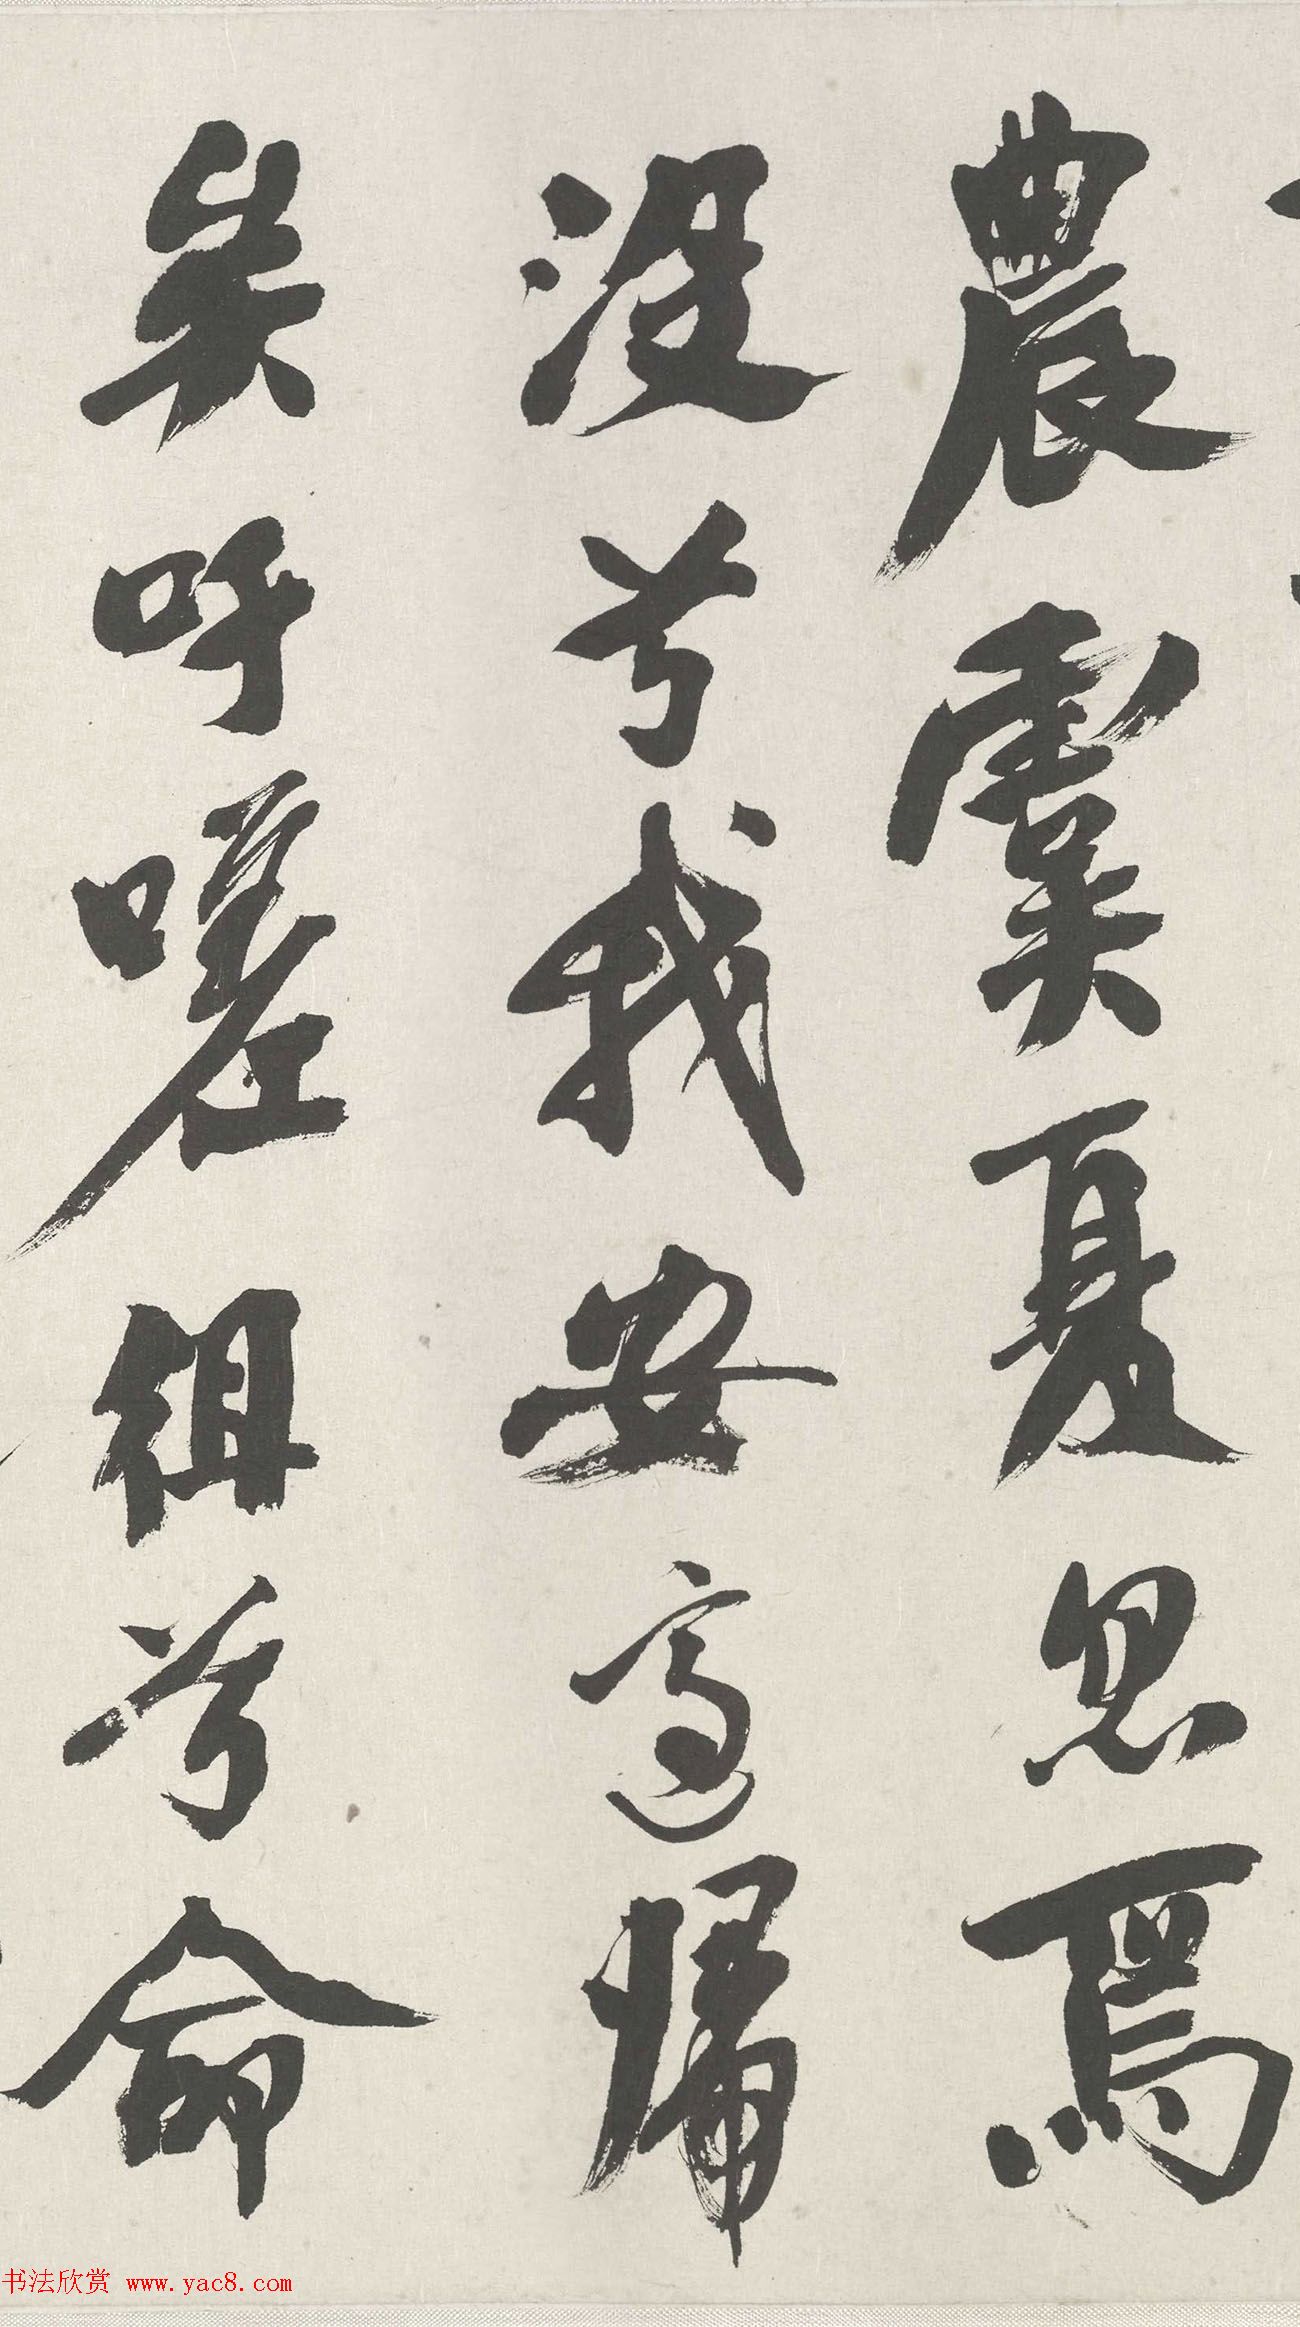 農虞夏忽焉
没兮我安適歸
矣吁嗟徂兮命
书法欣赏 www.yac8.com